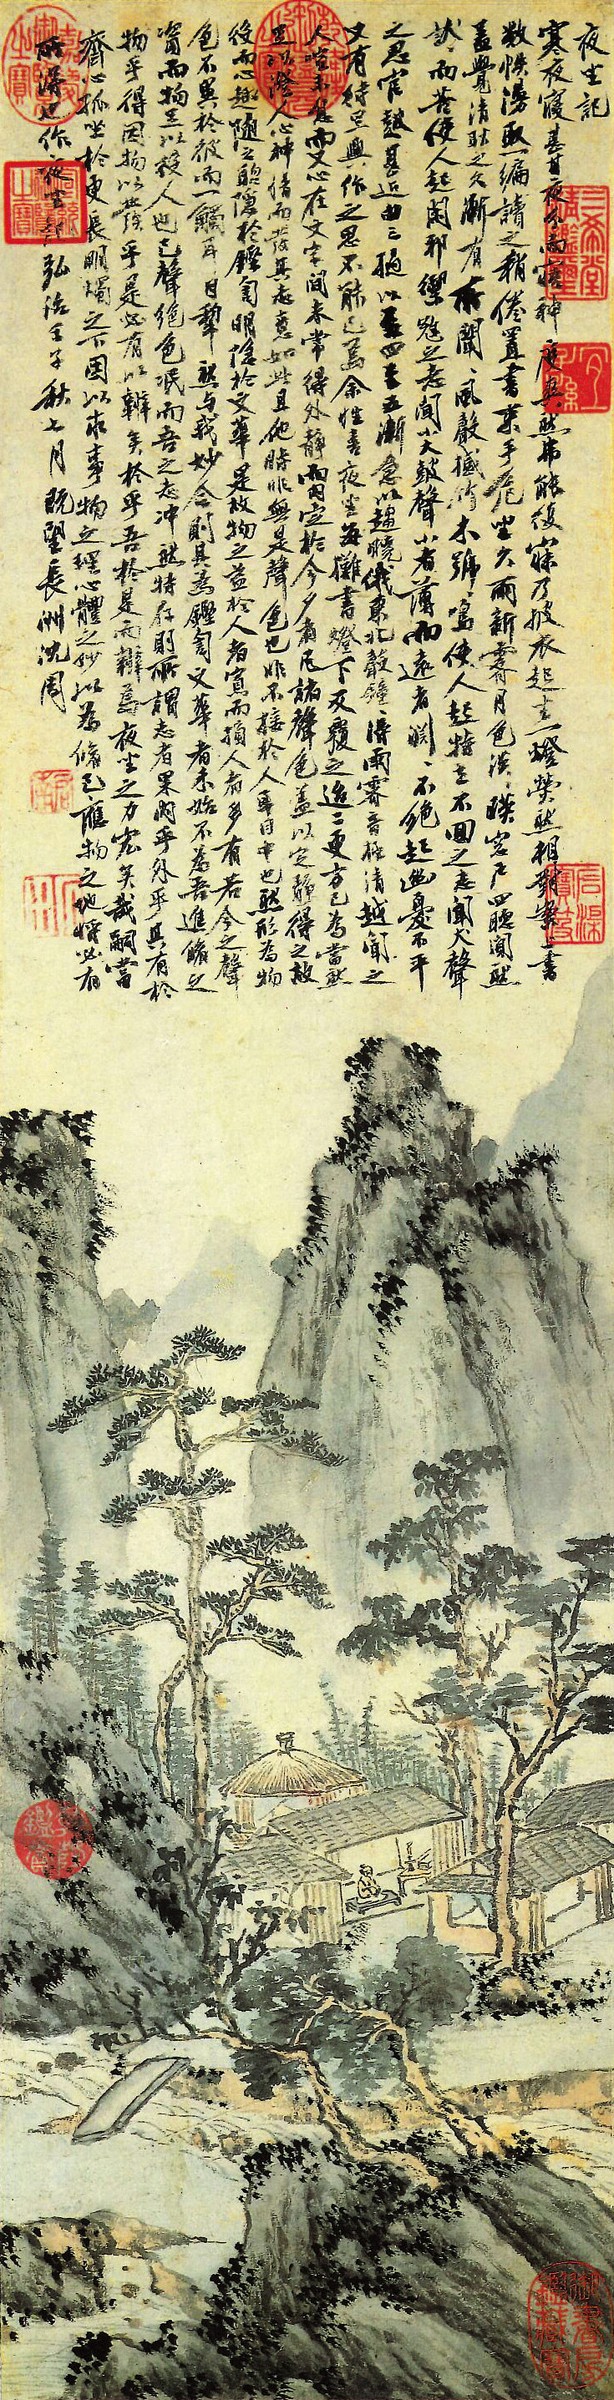 夜坐記
寒夜寢甚甘夜分而寤神度爽然弗能復寐乃披衣起坐一燈熒然相對案上書
數帙漫取一編讀之稍倦置書束手危坐久雨新霽月色淡淡映窗戶四聽闃然
蓋覺清耿之久漸有所聞聞風聲撼竹木號號鳴使人起特立不回之志聞犬聲
狺狺而苦使人起閑邪禦寇之志聞小大鼓聲小者薄而遠者淵淵不絕起幽憂不平
之思官鼓甚近由三撾以至四至五漸急以趨曉俄東北聲鐘鐘得雨霽音極清越聞之
又有待旦興作之思不能已焉余性喜夜坐每攤書燈下反覆之迨二更方已為當然
人喧未息而又心在文字間未常得外靜而內定於今夕者凡諸聲色蓋以定靜得之故
足以澄人心神情而發其志意如此且他時非無是聲色也非不接於人耳目中也然形為物
役而心趣隨之聰隱於鏗訇明隱於文華是故物之益於人者寡而損人者多有若今之聲
色不異於彼而一觸耳目犁然與我妙合則其為鏗訇文華者未始不為吾進脩之
資而物足以役人也已聲絕色泯而吾之志冲然特存則所謂志者果內乎外乎其有於
物乎得因物以發乎是必有以辨矣於乎吾於是而辨焉夜坐之力宏矣哉嗣當
齋心孤坐於更長明燭之下因以求事物之理心體之妙以為脩己應物之地將必有
所得也作夜坐記弘治壬子秋七月既望長洲沈周